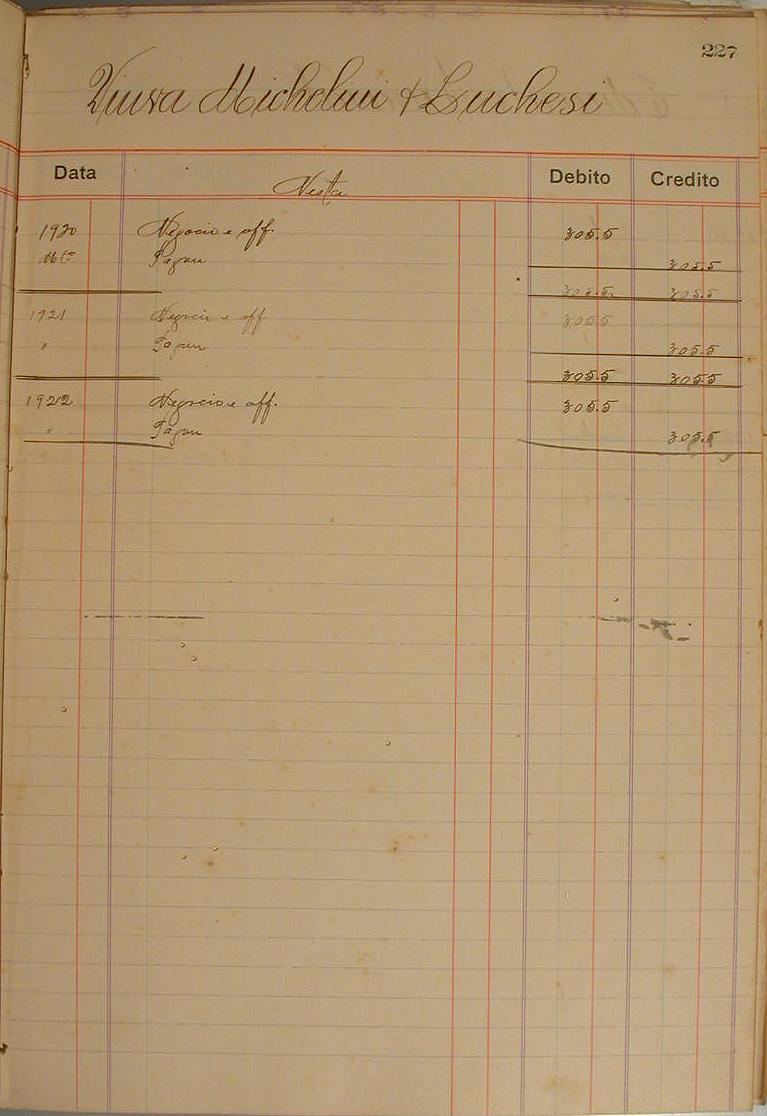 227
Viuva Micholini & Luchesi
Data Debito Credito
Nesta
1920 Negocio e off. 305.5
Pagou 305.5
305.5 305.5
1921 Negocio e off 305.5
" Pagou 305.5
305.5 305.5
1922 Negocio e off. 305.5
" Pagou 305.5